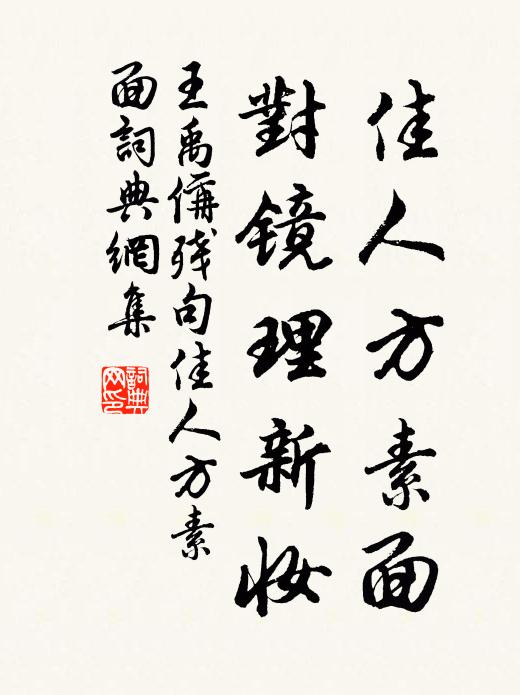 佳人方素面
對镜理新妆
王禹偁残句佳人方素
面詞典網集
詞典
网印